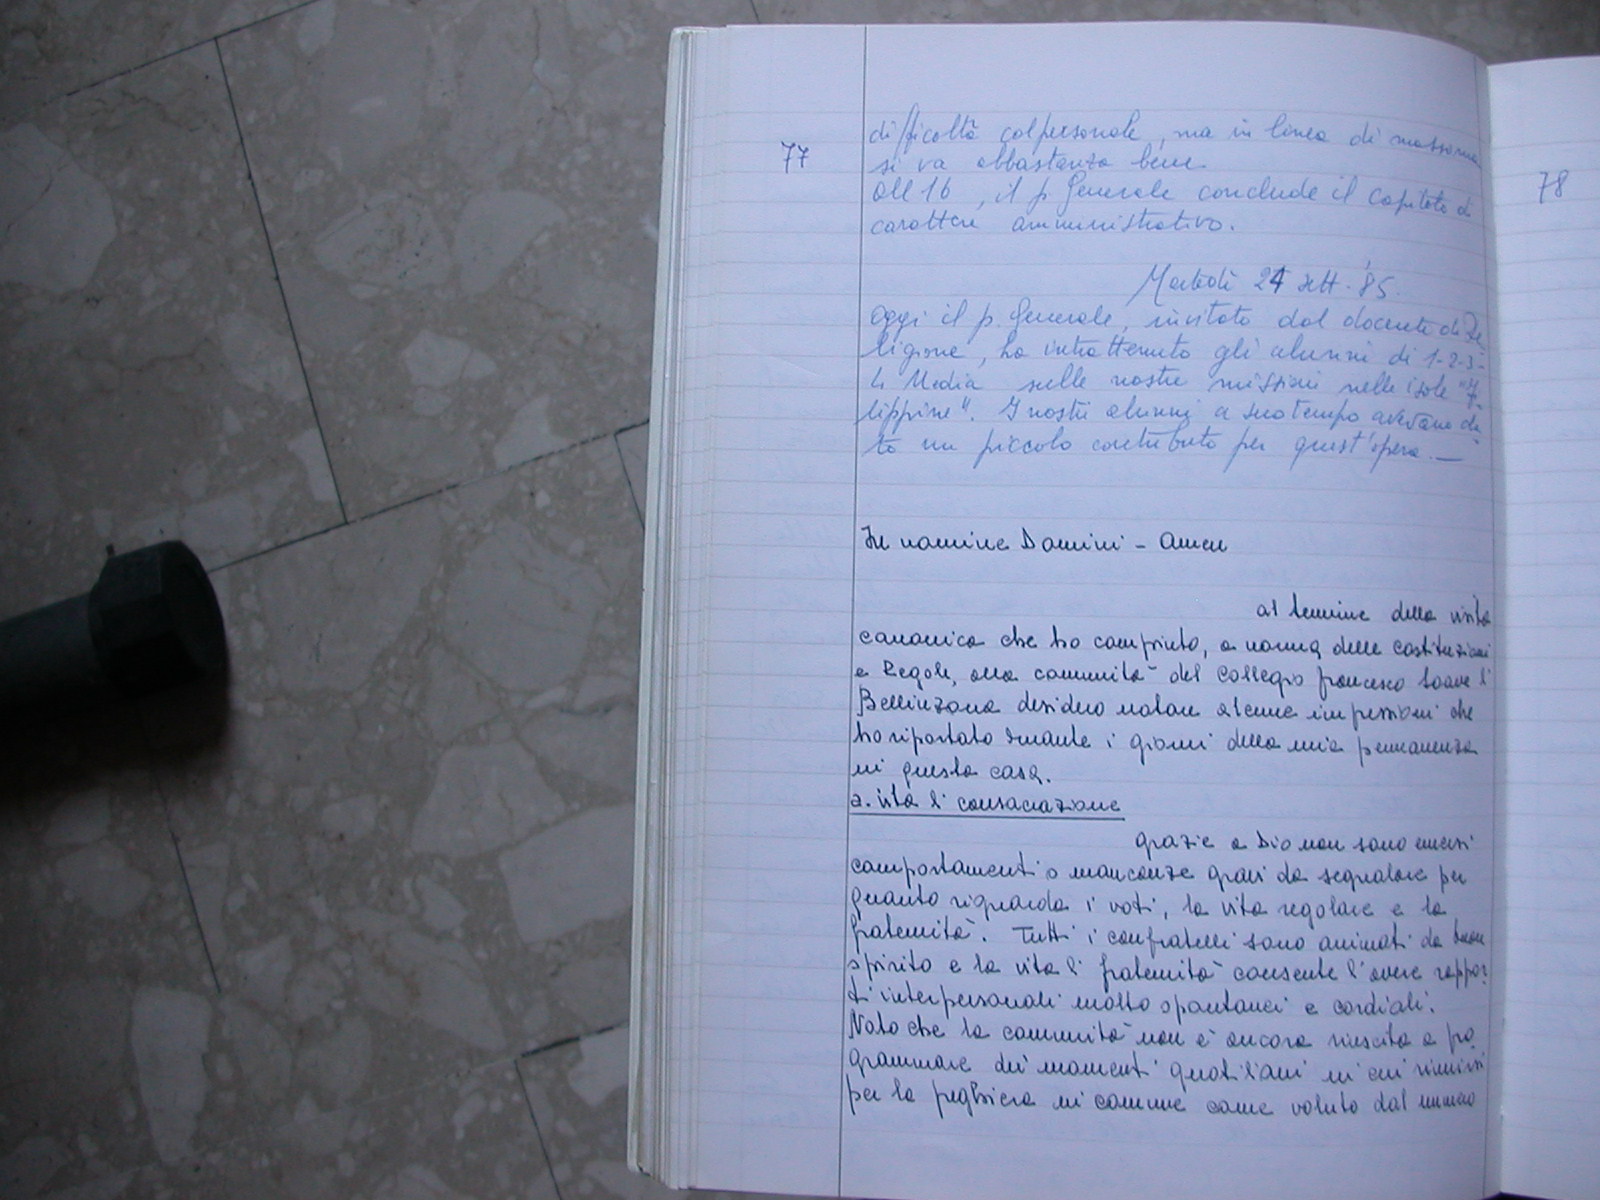 77
difficoltà col personale, ma in linea di massima
si va abbastanza bene.
all 16, il p. Generale conclude il capitolo di
carattere amministrativo.
Martedì 24 sett. '85.
Oggi il p. Generale, invitato dal docente di Re
ligione, ha intrattenuto gli alunni di 1-2-3-
4 Media sulle nostre missioni nelle isole "Fi
lippine". I nostri alunni a suo tempo avevano da
to un piccolo contributo per quest'opera. —
In nomine Domini - Amen
al termine della visita
canonica che ho compiuto, a norma delle costituzioni
e Regole, alla comunità del Collegio Francesco Soave di
Bellinzona desidero notare alcune impressioni che
ho riportato durante i giorni della mia permanenza
in questa casa.
a. vita di consacrazione
grazie a Dio non sono emersi
comportamenti o mancanze gravi da segnalare per
quanto riguarda i voti, la vita regolare e la
fraternità. Tutti i confratelli sono animati da buon
spirito e la vita di fraternità consente d'avere rappor
ti interpersonali molto spontanei e cordiali.
Noto che la comunità non è ancora riuscita a pro
grammare dei momenti quotidiani in cui riunirsi
per la preghiera in comune come voluto dal numero
78